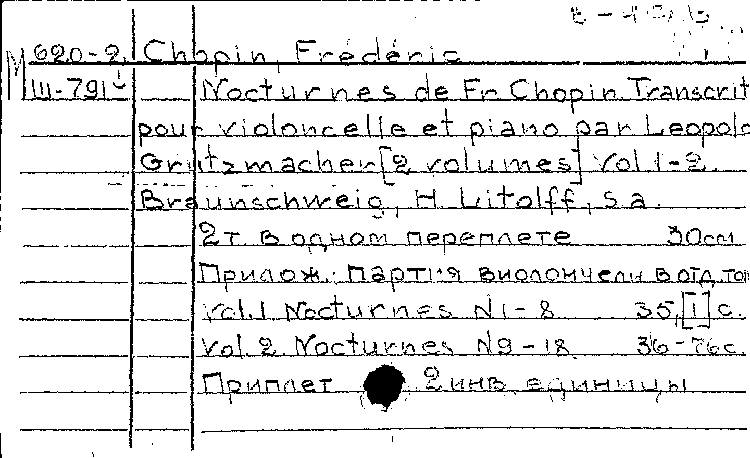 М 620-2 Chopin, Frédéric
III-791
Nocturnes de Fr. Chopin. Transcrit
pour violoncelle et piano par Leopold
Grützmacher [2 volumes] Vol. 1-2.
Braunschweig, H. Litolff, s.a.
2 т. в одном переплете 30 см
Прилож.: партия виолончели в отд. том
Vol. 1 Nocturnes N 1-8 35, [1] с.
Vol. 2 Nocturnes N 9-18 36-76 с.
Приплет 2 инв. единицы